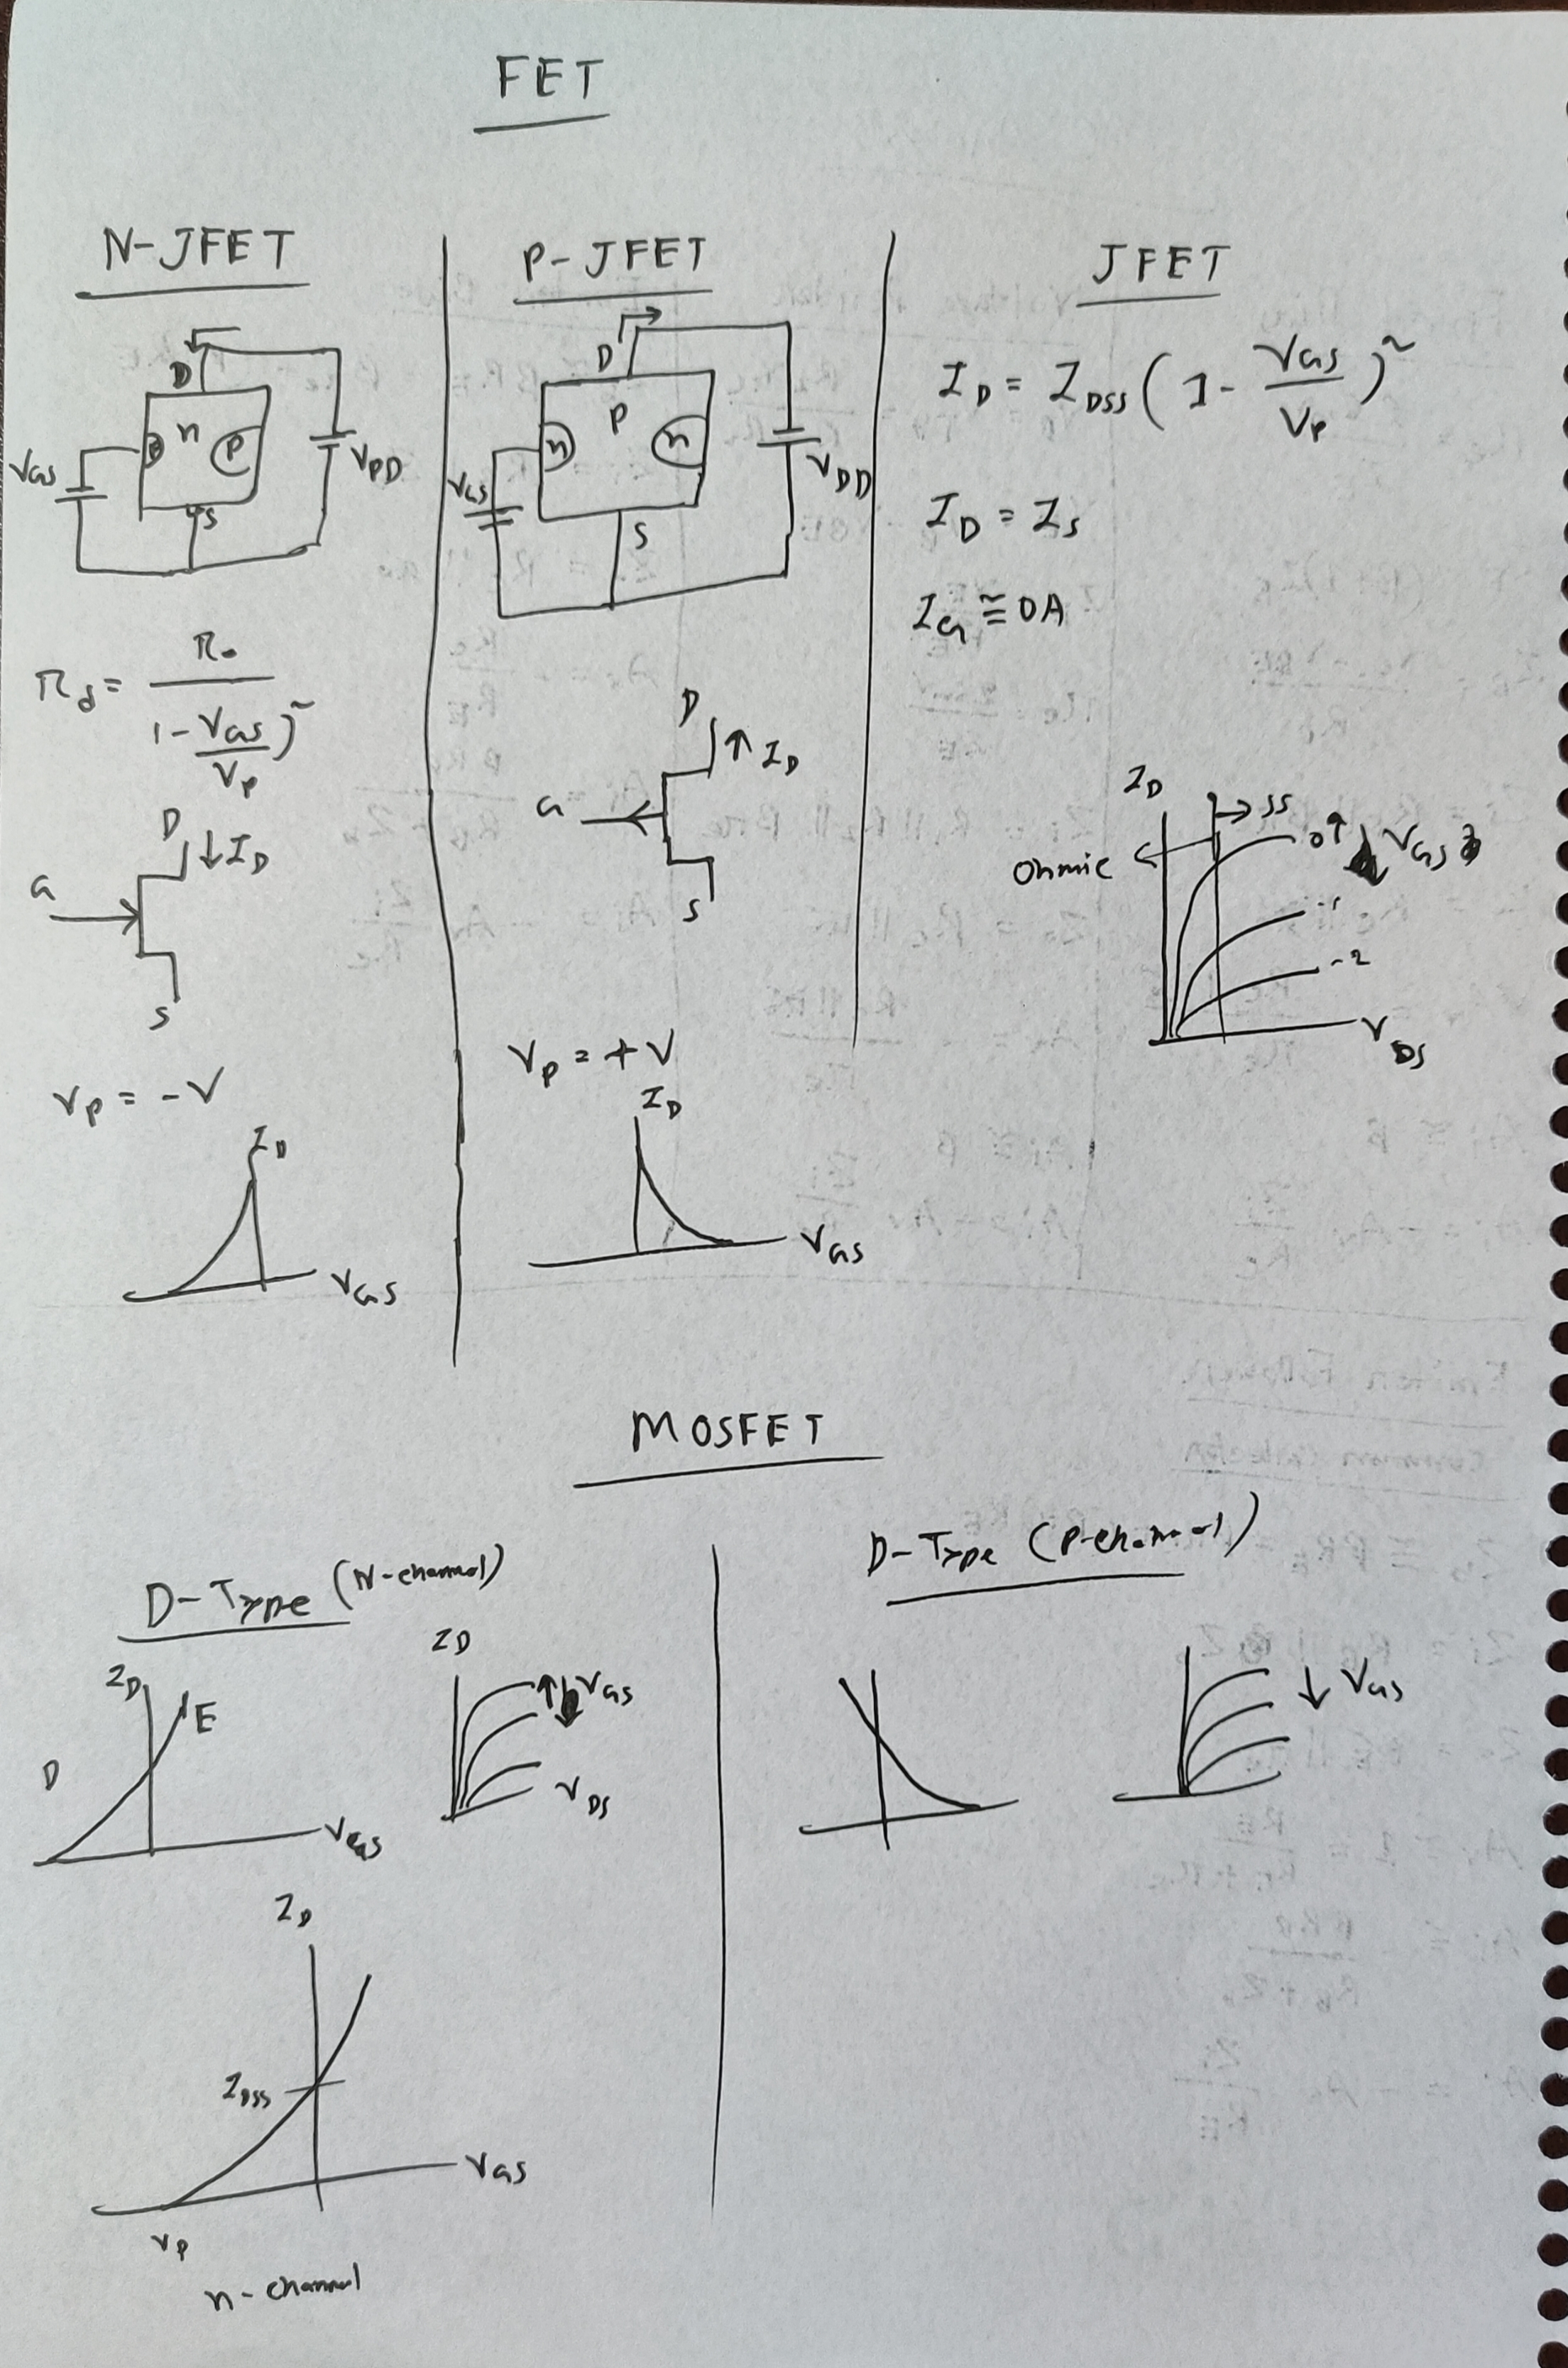 FET
N-JFET
D
n
P
VGS
VDD
S
rd = ro / (1 - VGS/VP)²
D
↓ID
G
S
VP = -V
ID
VGS
P-JFET
D
P
n
n
VGS
VDD
S
D
↑ID
G
S
VP = +V
ID
VGS
JFET
ID = IDSS (1 - VGS/VP)²
ID = IS
IG ≅ 0A
ID
→ SS
Ohmic
0 ↑ VGS
-1
-2
VDS
MOSFET
D-Type (N-channel)
ID
E
D
VGS
ID
↑ VGS
VDS
ID
IDSS
VGS
VP
n-channel
D-Type (P-channel)
↓ VGS